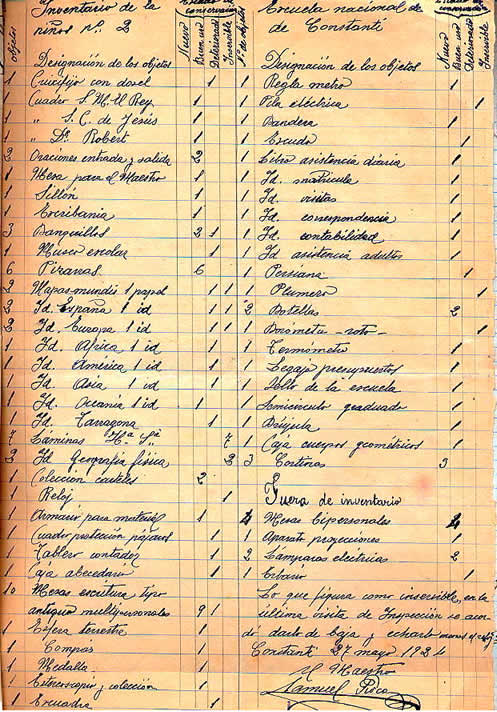 Inventario de la
niños nº 2
Nº objetos
Nuevo
Buen uso
Deteriorado
Inservible
Designación de los objetos
1 Crucifijo con dosel 1
1 Cuadro S. M. el Rey 1
1 " S. C. de Jesús 1
1 " Dr. Robert 1
2 Oraciones entrada y salida 2
1 Mesa para el Maestro 1
1 Sillón 1
1 Escribania 1
3 Banquillos 2 1
1 Museo escolar 1
6 Pizarras 6
2 Mapas-mundis 1 papel 1 1
2 Id. España 1 id 1 1
2 Id. Europa 1 id 1 1
1 Id. Africa 1 id 1
1 Id. América 1 id 1
1 Id. Asia 1 id 1
1 Id. Oceanía 1 id 1
1 Id. Tarragona 1
7 Láminas Hª Sª 7
2 Id Geografia fisica 2
1 Coleccion carteles 2
1 Reloj 1
1 Armario para material 1
1 Cuadro protección pájaros 1
1 Tablero contador 1
1 Caja abecedario 1
10 Mesas escritura tipo
antiguo multipersonales 9 1
1 Esfera terrestre 1
1 Compas 1
1 Medalla 1
1 Estereoscopio y colección 1
1 Escuadra 1
Escuela nacional de
de Constantí
Nº de objetos
Nuevo
Buen uso
Deteriorado
Inservible
Designación de los objetos
1 Regla metro 1
1 Pila eléctrica 1
1 Bandera 1
1 Escudo 1
1 Libro asistencia diaria 1
1 Id. matricula 1
1 Id. visitas 1
1 Id. correspondencia 1
1 Id. contabilidad 1
1 Id asistencia adultos 1
1 Persiana 1
1 Plumero 1
2 Botellas 2
1 Barómetro - roto - 1
1 Termómetro 1
1 Legajo presupuestos 1
1 Sello de la escuela 1
1 Semicirculo graduado 1
1 Brújula 1
1 Caja cuerpos geométricos 1
3 Cortinas 3
Fuera de inventario
4 Mesas bipersonales 4
1 Aparato proyecciones 1
2 Lámparas eléctricas 2
1 1
Lo que figura como inservible, en la
última visita de Inspección se acor-
dó darlo de baja y echarlo
Constantí 27 mayo 1924
El Maestro